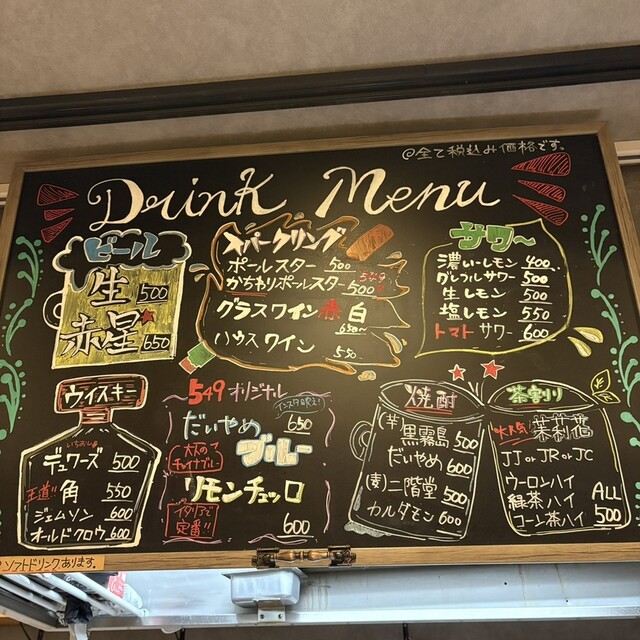 @全て税込み価格です。
Drink Menu
ビール
生 500
赤星 650
スパークリング
ポールスター 500
かちわりポールスター 500
グラスワイン 赤 白
ハウスワイン 550
サワ〜
濃いレモン 400
グレフルサワー 500
生レモン 500
塩レモン 550
トマトサワー 600
ウイスキー
いちおし
デュワーズ 500
王道!! 角 550
ジェムソン 600
オールドクロウ 600
549 オリジナル
だいやめ 650
大人の
チャイナブルー
ブルー
リモンチェッロ
イタリアで
定番!! 600
焼酎
(芋) 黒霧島 500
だいやめ 600
(麦) 二階堂 500
カルダモン 600
茶割り
大人気!
JJ or JR or JC
ウーロンハイ
緑茶ハイ ALL
コーン茶ハイ 500
ソフトドリンクあります。